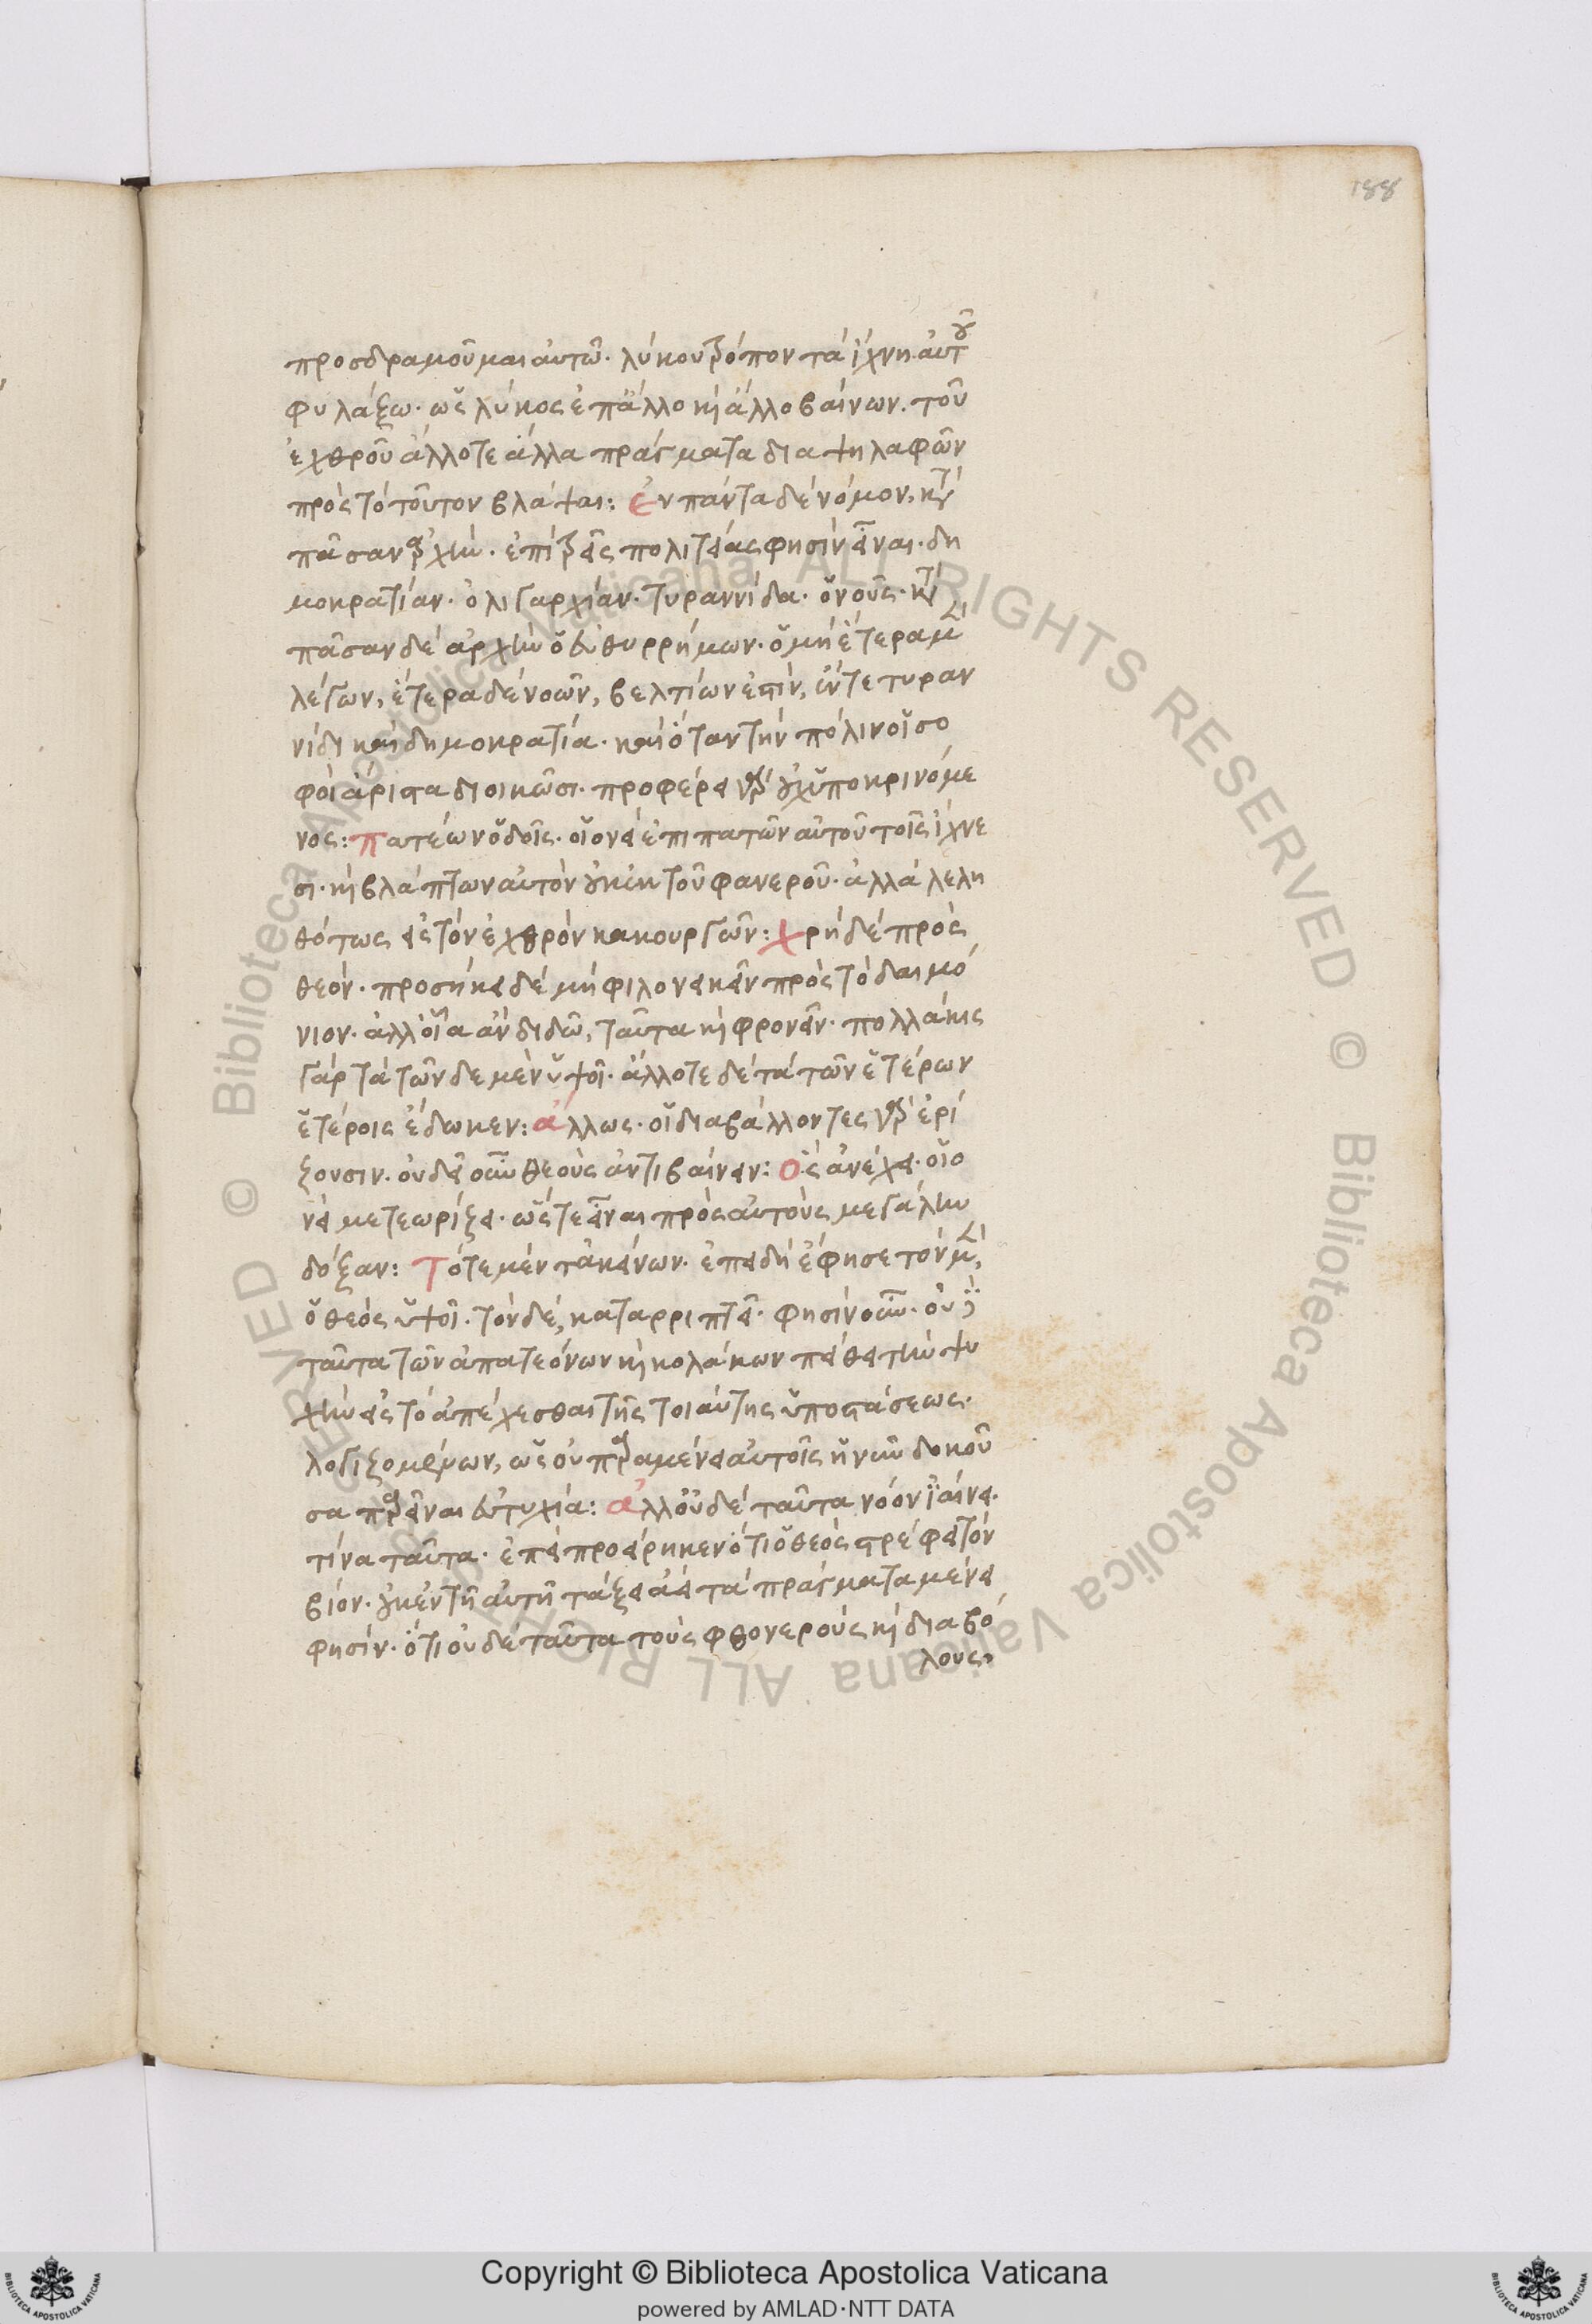 188
προσδραμοῦμαι αὐτῶ· λύκου τρόπον τὰ ἴχνη αὐτοῦ
φυλάξω· ὡς λύκος ἐπ' ἄλλο κὶ ἄλλο βαίνων. τοῦ
ἐχθροῦ ἄλλοτε ἄλλα πράγματα διαψηλαφῶν
πρὸς τὸ τοῦτον βλάψαι: ἐν πάντα δὲ νόμον, κατὰ
πᾶσαν ἀρχὴν· ἐπὶ τρεῖς πολιτείας φησὶν εἶναι· δη
μοκρατίαν· ὀλιγαρχίαν· τυραννίδα· ὁ νοῦς· κατὰ
πᾶσαν δὲ ἀρχὴν ὁ εὐθυρρήμων· ὁ μὴ ἕτερα μὲν
λέγων, ἕτερα δὲ νοῶν, βελτίων ἐστὶν, ἔν τε τυραν
νίδι καὶ δημοκρατία· καὶ ὅταν τὴν πόλιν οἱ σο
φοὶ ἄριστα διοικῶσι· προφέρει γὰρ οὐχ ὑποκρινόμε
νος: πατέων ὁδοῖς· οἱονεὶ ἐπιπατῶν αὐτοῦ τοῖς ἴχνε
σι· κὶ βλάπτων αὐτὸν οὐκ ἐκ τοῦ φανεροῦ· ἀλλὰ λελη
θότως εἰς τὸν ἐχθρὸν κακουργῶν: χρὴ δὲ πρὸς
θεόν· προσήκει δὲ μὴ φιλονεικεῖν πρὸς τὸ δαιμό
νιον· ἀλλ' οἷα ἂν διδῶ, ταῦτα κὶ φρονεῖν· πολλάκις
γὰρ τὰ τῶνδε μὲν ὑψοῖ· ἄλλοτε δὲ τὰ τῶν ἑτέρων
ἑτέροις ἔδωκεν: ἄλλως· οἱ διαβάλλοντες γὰρ ἐρί
ζουσιν. οὐ δεῖ οὖν θεοὺς ἀντιβαίνειν: ὃς ἀνέχει· οἱο
νεὶ μετεωρίζει· ὥστε εἶναι πρὸς αὐτοὺς μεγάλην
δόξαν: Τότε μὲν τἀκείνων· ἐπειδὴ ἔφησε τὸν μὲν,
ὁ θεὸς ὑψοῖ· τὸν δὲ, καταρριπτεῖ· φησὶν οὖν· οὐδὲ
ταῦτα τῶν ἀπατεόνων κὶ κολάκων πείθει τὴν ψυ
χὴν εἰς τὸ ἀπέχεσθαι τῆς τοιαύτης ὑποστάσεως·
λογιζομένων, ὡς οὐ παραμένει αὐτοῖς ἡ νῦν δοκοῦ
σα παρεῖναι εὐτυχία: ἀλλ' οὐδὲ ταῦτα νόον ἰαίνει·
τίνα ταῦτα· ἐπεὶ προείρηκεν ὅτι ὁ θεὸς στρέφει τὸν
βίον· οὐκ ἐν τῆ αὐτῆ τάξει ἀεὶ τὰ πράγματα μένει
φησίν· ὅτι οὐδὲ ταῦτα τοὺς φθονεροὺς κὶ διαβό
λους,
Copyright © Biblioteca Apostolica Vaticana
powered by AMLAD·NTT DATA